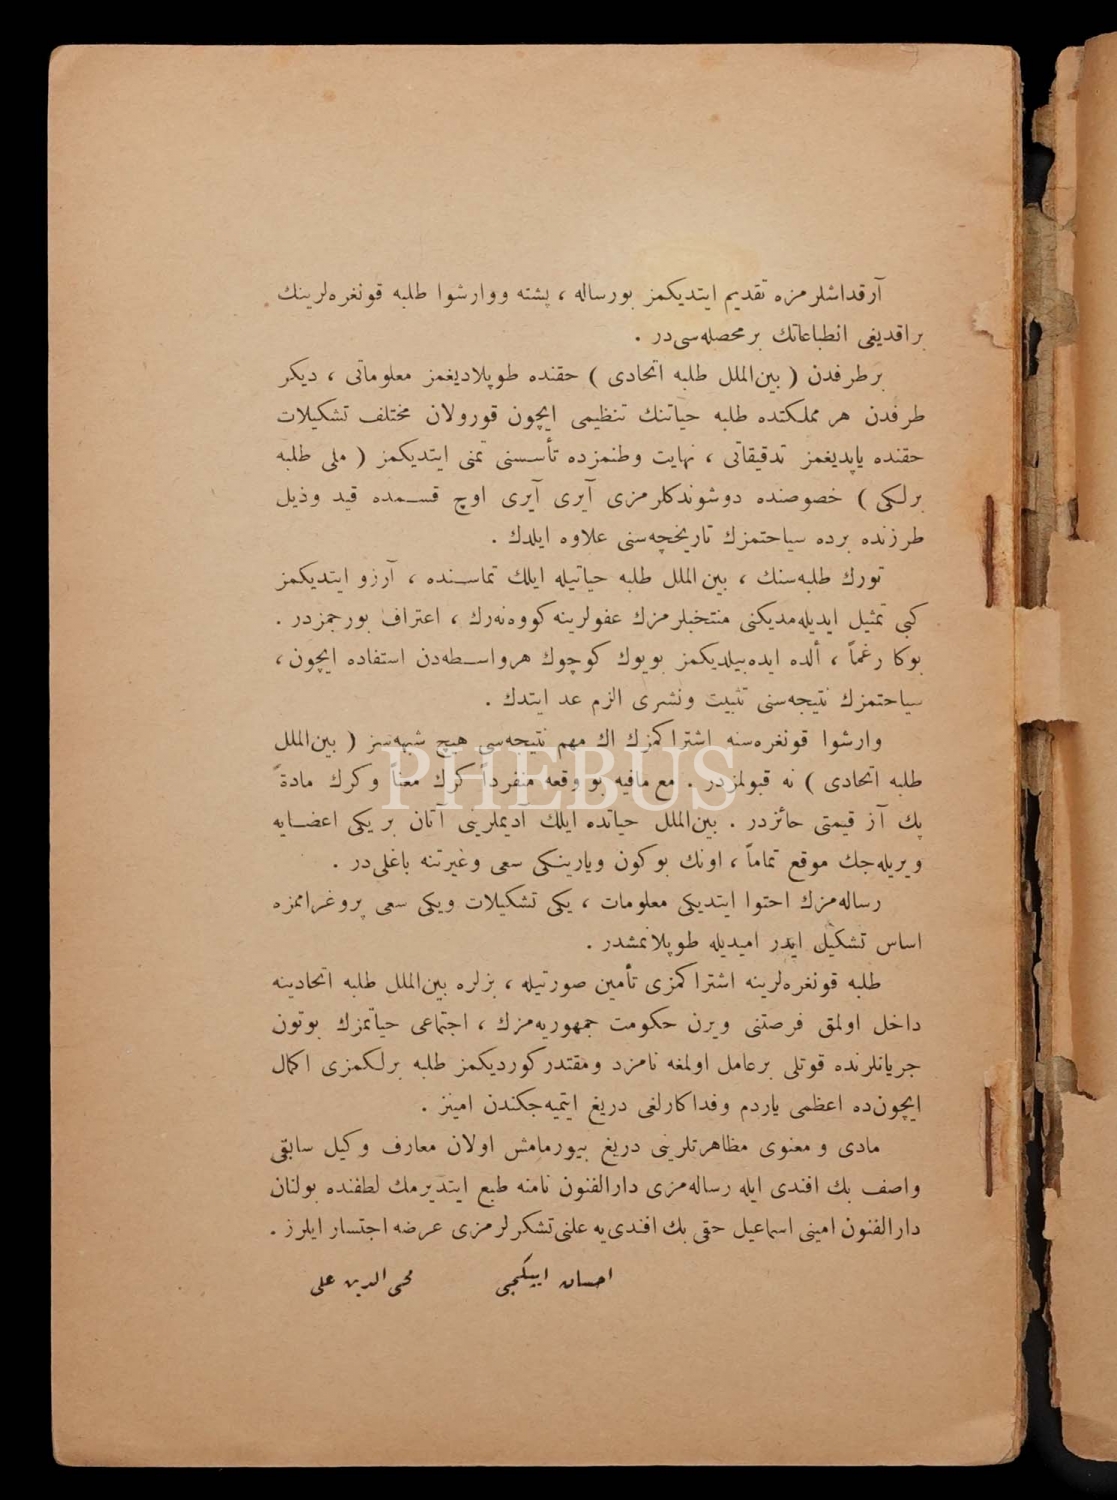 آرقداشلرمزه تقدیم ایتدیكمز بورساله ، پشته ووارشوا طلبه قونغره‌لرینك
براقدیغی انطباعاتك بر محصله‌سی‌در .
برطرفدن ( بین‌الملل طلبه اتحادی ) حقنده طوپلادیغمز معلوماتی ، دیكر
طرفدن هر مملكتده طلبه حیاتنك تنظیمی ایچون قورولان مختلف تشكیلات
حقنده یاپدیغمز تدقیقاتی ، نهایت وطنمزده تأسسنی تمنی ایتدیكمز ( ملی طلبه
برلكی ) خصوصنده دوشوندكلرمزی آیری آیری اوچ قسمده قید وذیل
طرزنده برده سیاحتمزك تاریخچه‌سنی علاوه ایلدك .
تورك طلبه‌سنك ، بین‌الملل طلبه حیاتیله ایلك تماسنده ، آرزو ایتدیكمز
كبی تمثیل ایدیله‌مدیكنی منتخبلرمزك عفولرینه كووه‌نه‌رك ، اعتراف بورجمزدر .
بوكا رغماً ، ألده ایده‌بیلدیكمز بویوك كوچوك هرواسطه‌دن استفاده ایچون ،
سیاحتمزك نتیجه‌سنی تثبیت ونشری الزم عد ایتدك .
وارشوا قونغره‌سنه اشتراكمزك اك مهم نتیجه‌سی هیچ شبهه‌سز ( بین‌الملل
طلبه اتحادی ) نه قبولمزدر . مع مافیه بو وقعه منفرداً كرك معناً وكرك مادةً
پك آز قیمتی حائزدر . بین‌الملل حیاتده ایلك آدیملرینی آتان بر یكی اعضایه
ویریله‌جك موقع تماماً ، اونك بوكون ویارینكی سعی وغیرتنه باغلی‌در .
رساله‌مزك احتوا ایتدیكی معلومات ، یكی تشكیلات ویكی سعی پروغراممزه
اساس تشكیل ایدر امیدیله طوپلانمشدر .
طلبه قونغره‌لرینه اشتراكمزی تأمین صورتیله ، بزلره بین‌الملل طلبه اتحادینه
داخل اولمق فرصتنی ویرن حكومت جمهوریه‌مزك ، اجتماعی حیاتمزك بوتون
جریانلرنده قوتلی برعامل اولمغه نامزد ومقتدر كوردیكمز طلبه برلكمزی اكمال
ایچون‌ده اعظمی یاردم وفداكارلغی دریغ ایتمیه‌جكندن امینز .
مادی و معنوی مظاهرتلرینی دریغ بیورمامش اولان معارف وكیل سابقی
واصف بك افندی ایله رساله‌مزی دارالفنون نامنه طبع ایتدیرمك لطفنده بولنان
دارالفنون امینی اسماعیل حقی بك افندی‌یه علنی تشكرلرمزی عرضه اجتسار ایلرز .
احسان ایپكجی محی الدین علی
PHEBUS